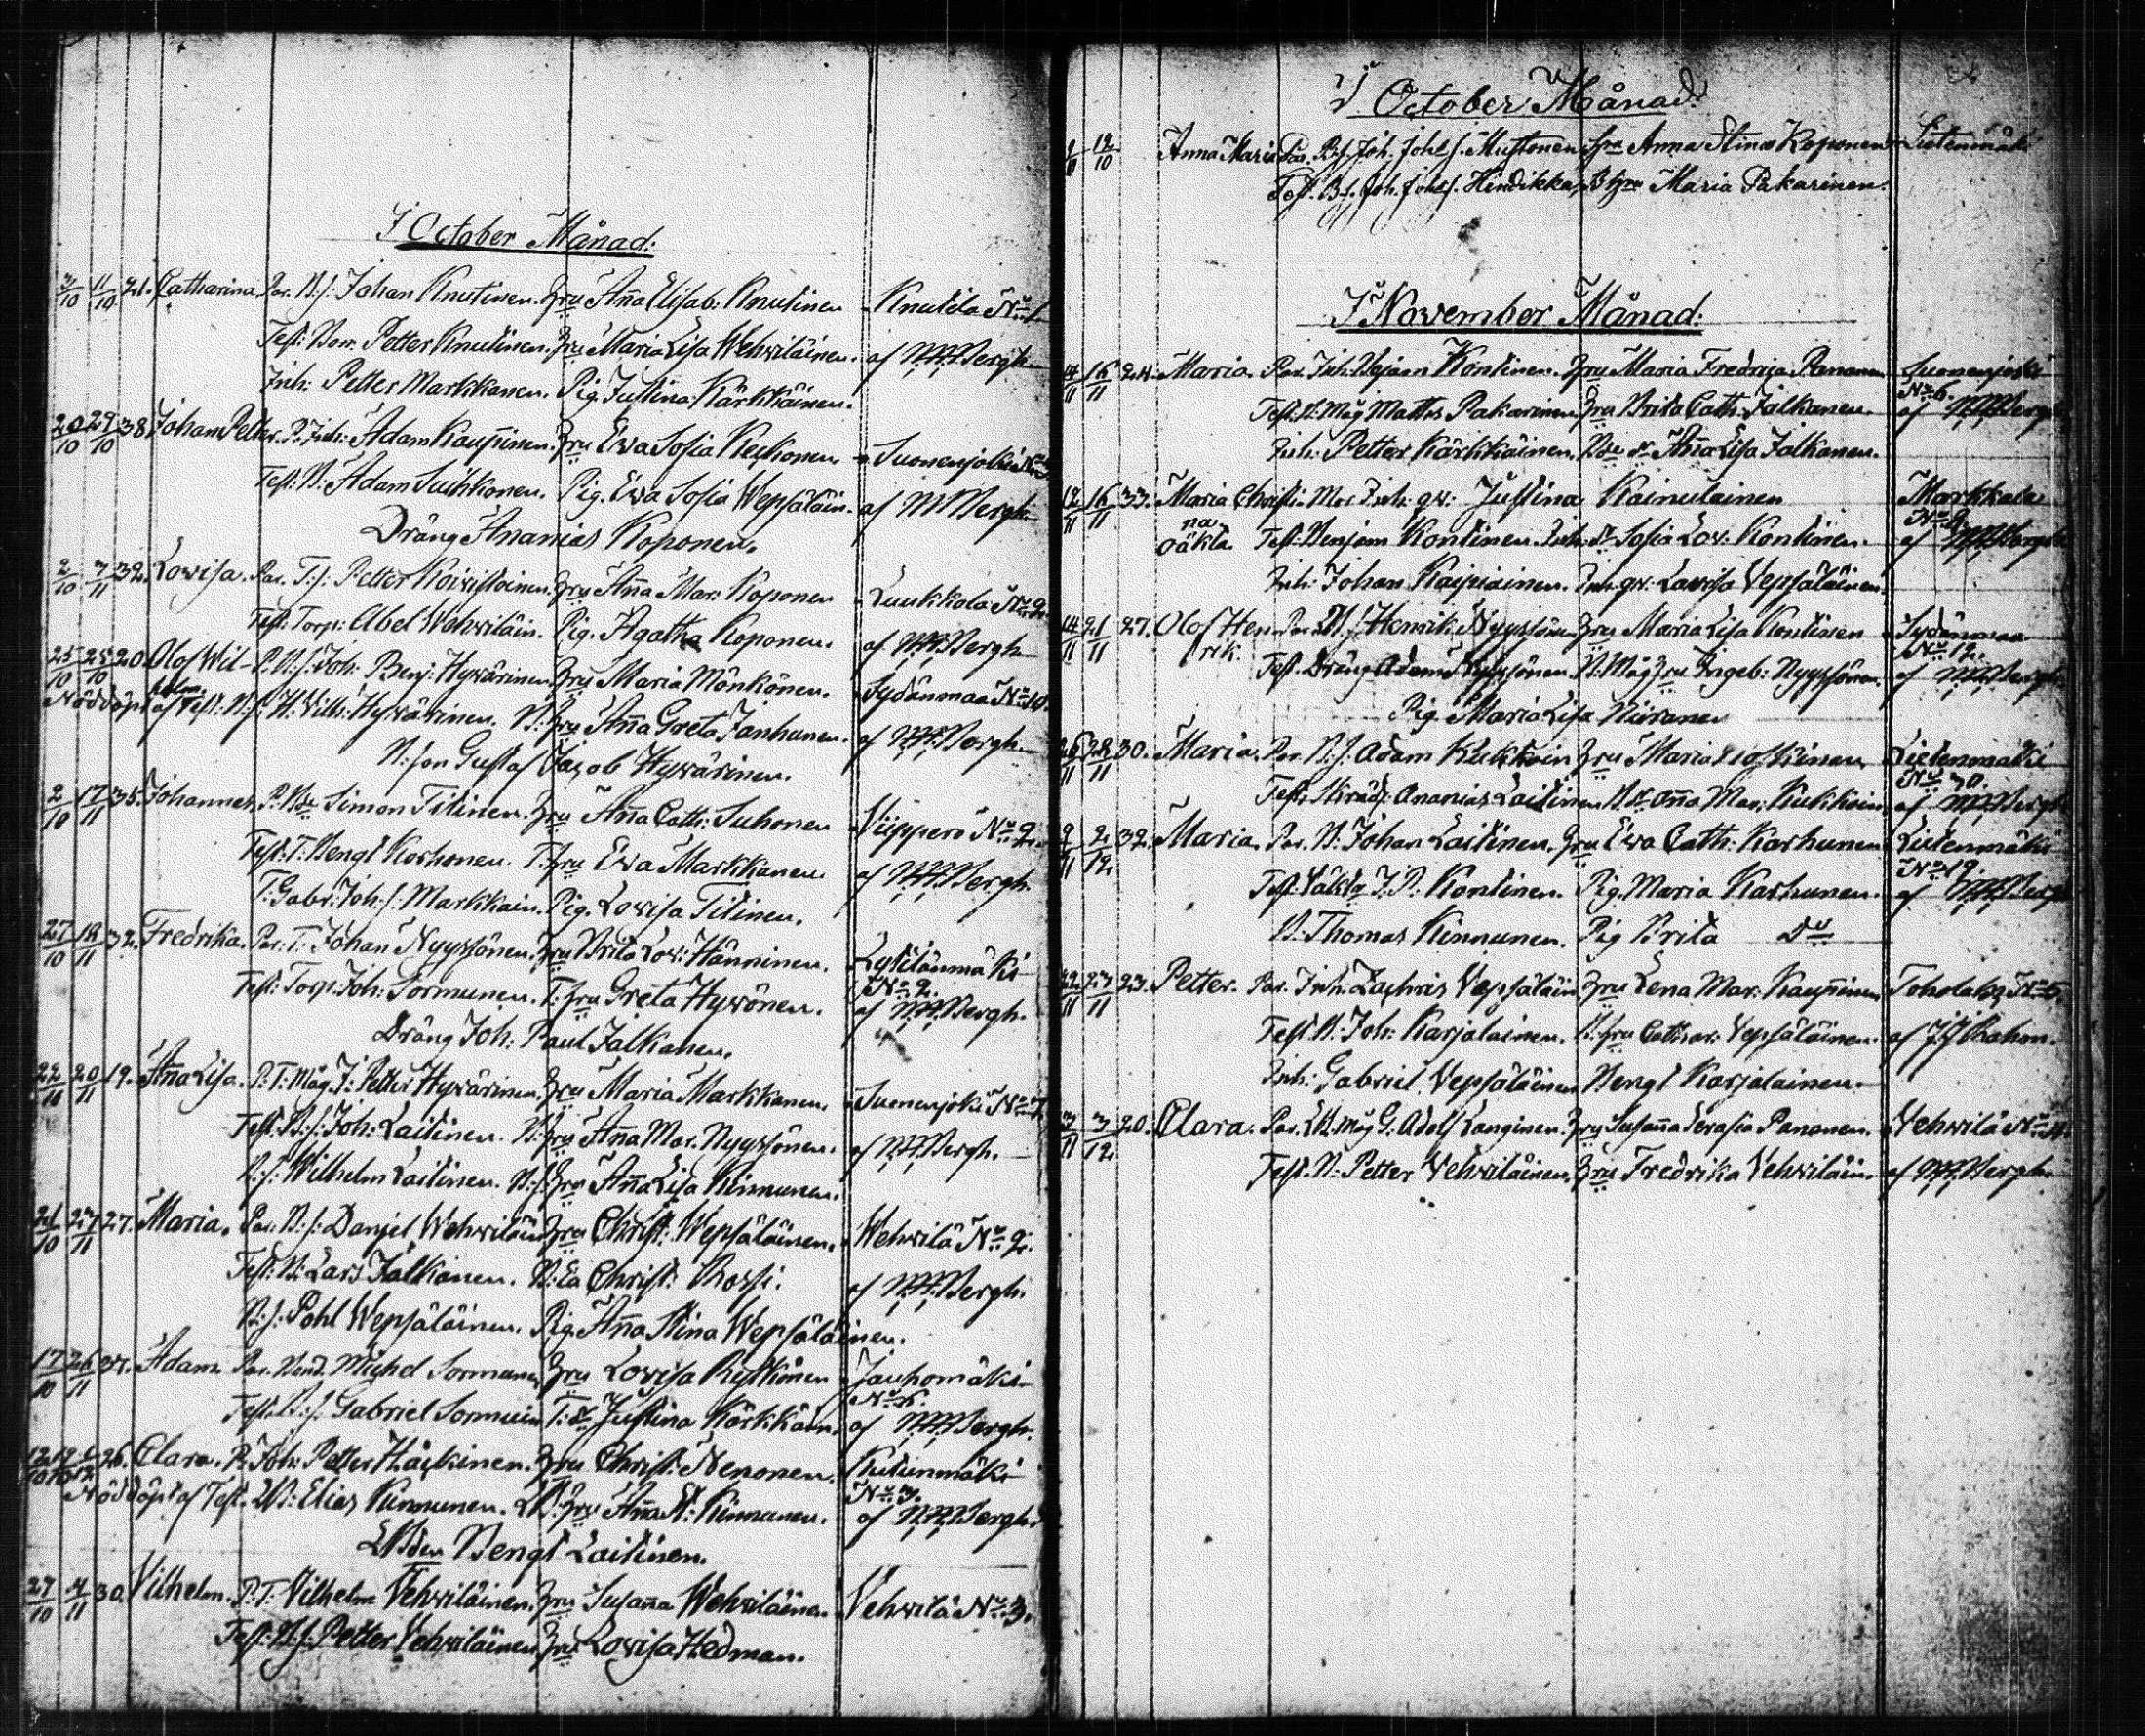 I October Månad:
3/10 11/10 21. Catharina. Par. B. s: Johan Knutinen. Hru Aña Elisab: Knutinen Knutila No 1
Test: Bon. Petter Knutinen. Hru Maria Lisa Wehviläinen. af N. N. Bergh
Inh: Petter Markkanen. Pig. Justina Kärkkäinen.
20/10 29/10 38 Johan Petter. P. Inh: Adam Kaupinen. Hru Ewa Sofia Keckonen. Suonenjoki No
Test: B: Adam Suihkonen. Pig. Ewa Sofia Wepsäläin. af N Bergh
Dräng Ananias Koponen.
2/10 7/11 32. Lovisa. Par. T. s: Petter Koivistoinen. Hru Aña Mar: Koponen Luukkola No 2.
Test: Torp: Abel Wehviläin. Pig. Agatha Koponen. af N. N. Bergh
25/10 25/10 20. Olof Wil- P. B. s: Joh: Benj: Hyvärinen Hru Maria Mönkönen. Sydänmaa No 10.
Nöddöpt af helm. Test: B. s: H: Vilh: Hyvärinen. B: Hru Aña Greta Janhunen. af N. N. Bergh
B: son Gustaf Jacob Hyvärinen.
2/10 17/11 35. Johannes. P. Bde Simon Titinen. Hru Aña Cath: Suhonen Viippero No 2.
Test: T: Bengt Korhonen. T: hru Ewa Markkanen. af N. N. Bergh.
T: Gabr: Joh: s: Markkain. Pig. Lovisa Titinen.
27/10 18/11 32. Fredrika. Par: T: Johan Nyyssönen. Hru Brita Lov: Hänninen. Lyytilänmäki
No 2.
Test: Torp. Joh: Sormunen. T: hru Greta Hyvönen. af N. N. Bergh.
Dräng Joh: Paul Jalkanen.
22/10 20/11 19. Aña Lisa. P: T: Måg. J: Petter Hyvärinen. Hru Maria Markkanen. Suonenjoki No 7.
Test: B. s: Joh: Laitinen. B: hru Aña Mar. Nyyssönen. af N. N. Bergh.
B: s: Wilhelm Laitinen. B: s: Hru Aña Lisa Kinnunen.
21/10 27/11 27. Maria. Par. B. s: Danjel Wehviläin Hru Christ: Wepsäläinen. Wehvilä No 2.
Test: B: Lars Jalkanen. B: Ea Christ: Rossi. af N. N. Bergh.
B. s: Pohl Wepsäläinen. Pig. Aña Stina Wepsäläinen.
17/10 26/11 37. Adam Par. Bond. Michel Sormunen Hru Lovisa Rytkönen Jauhomäki
No 6.
Test. B. s: Gabriel Sormuin T: Justina Kärkkäin. af N. N. Bergh.
12/10 19/10 26. Clara. P. Joh: Petter Häikinen. Hru Christ: Nenonen. Kutunmäki
No 3.
Nöddöpt af Test. LB: Elias Kinnunen. LB: hru Aña El: Kinnunen. af N. N. Bergh.
LBden Bengt Laitinen.
27/10 4/11 30. Vilhelm. P. T: Vilhelm Vehviläinen. Hru Susaña Wehviläinen. Vehvilä No 3.
Test: B. s. Petter Vehviläinen. Hru Lovisa Hedman.
I October Månad:
12/10 Anna Maria Par. B. s. Joh. Johs s. Mustonen Hru Anna Stina Koponen Lietenmäki
Test. B s. Joh. Johs s. Hindikka, B hru Maria Pakarinen.
I November Månad:
4/11 16/11 24. Maria. Par. Inh: Bejam Kontinen. Hru Maria Fredrija Pananen Suonenjoki
No 6.
Test. B: Måg Matths Pakarinen. Hru Brita Cath: Jalkanen. af N. N. Bergh
Inh: Petter Kärkkäinen. Aña Lisa Jalkanen.
12/11 16/11 33. Maria Christi- Mor Inh: qv: Justina Kainulainen Markkala
na No 2.
Oäkta Test: Benjam Kontinen. Inh: Sofia Lov: Kontinen. af N. N. Bergh
Inh: Johan Kaipiainen. Inh: qv: Lovisa Vepsäläinen.
14/11 21/11 27. Olof Hen- Par. B. s: Henrik Nyyssönen Hru Maria Lisa Kontinen Sydänmaa
rik. No 12.
Test. Dräng Adam Nyyssönen. B: Måg hru Ingeb: Nyyssönen. af N. N. Bergh
Pig. Maria Lisa Niiranen
26/11 28/11 30. Maria. Par. B. s. Adam Kukkoin Hru Maria Lietenmäki
No 30.
Test. Skräd: Ananias Laitinen Aña Mar: Kukkoin af N. N. Bergh
9/11 2/12 32. Maria. Par. B: Johan Laitinen. Hru Ewa Cath: Karhunen Lietenmäki
No 19.
Test: J. P. Kontinen. Pig. Maria Karhunen. af N. N. Bergh
B: Thomas Kinnunen. Pig Brita Do
22/11 23/11 23. Petter. Par. Inh: Zachris Vepsäläin Hru Lena Mar: Kaupinen Toholax No 5.
Test B: Joh: Karjalainen. B. hru Cathar: Vepsäläinen. af
Inh: Gabriel Vepsäläinen Bengt Karjalainen.
3/11 3/12 20. Clara. Par. LB. måg G. Adolf Langinen. Hru Susaña Serafia Pananen. Vehvilä No 4.
Test. B: Petter Vehviläinen. Hru Fredrika Vehviläin. af N. N. Bergh.